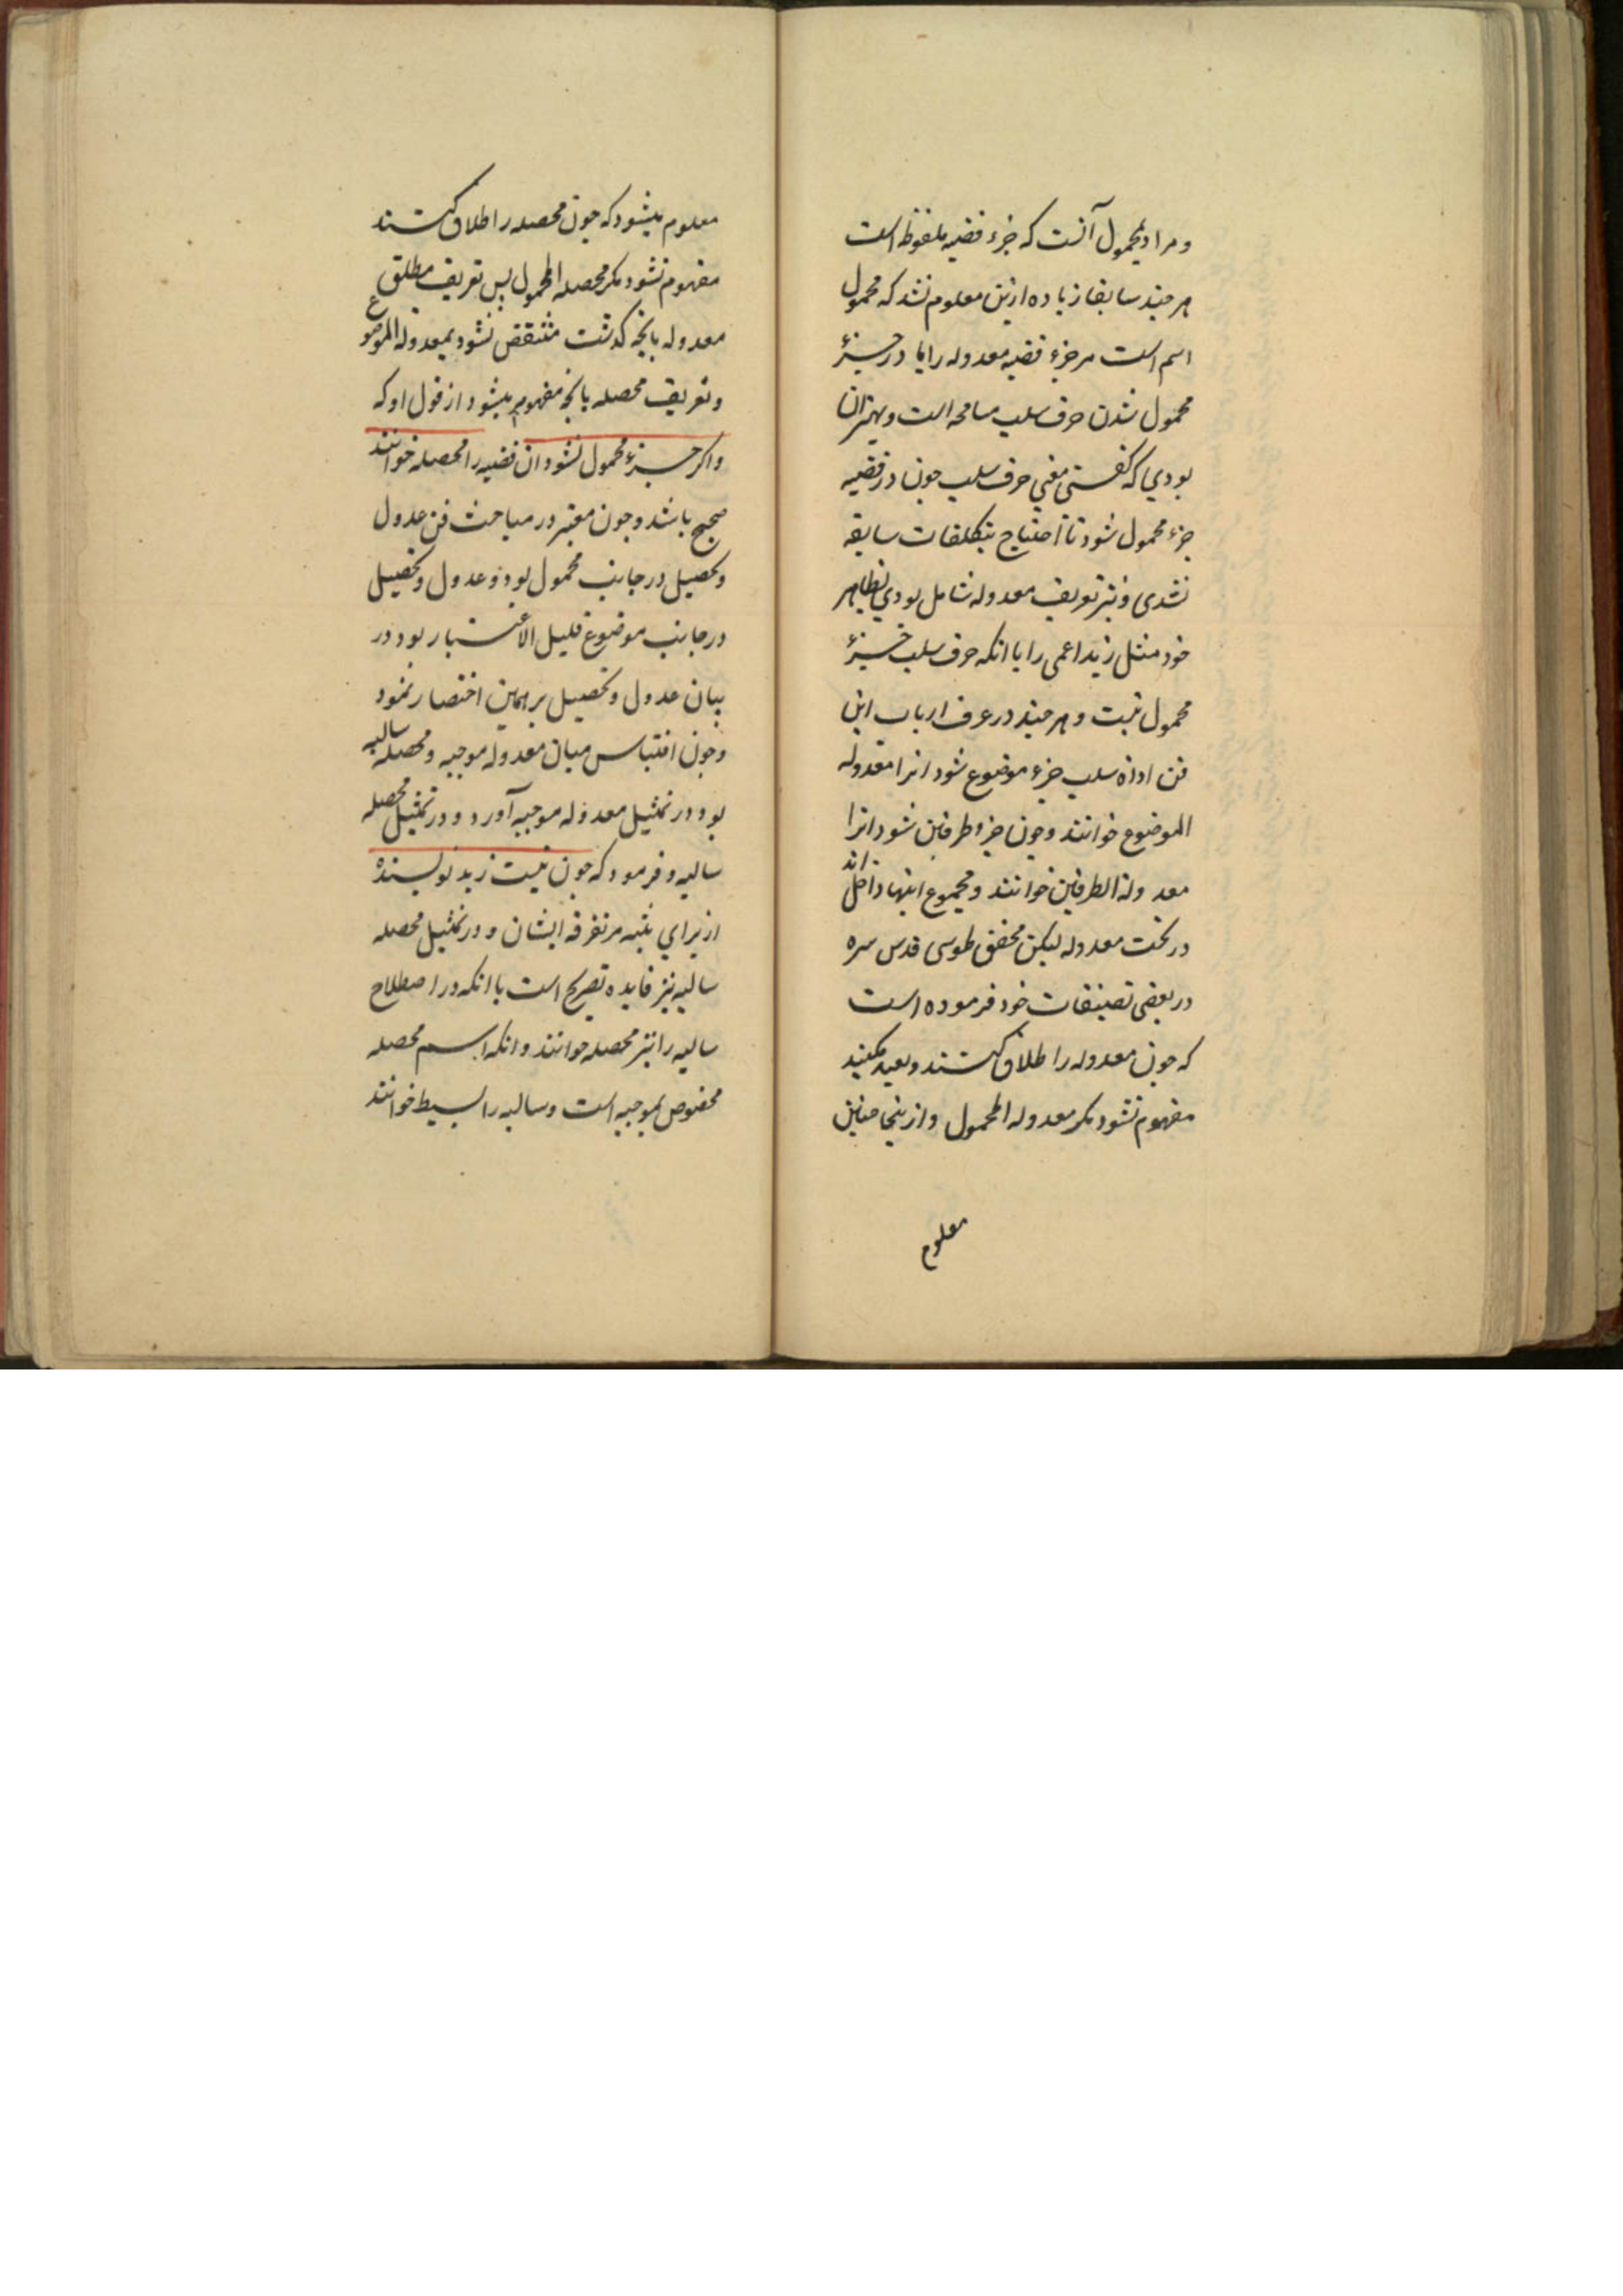 و مراد بمحمول آنست که جزء قضیه ملفوظ است
هر چند سابقا زیاده ازین معلوم نشد که محمول
اسم است مر جزء قضیه معدوله را یا در جزء
محمول شدن حرف سلب مسامحه است و بهتر ان
بودی که گفتی معنی حرف سلب چون در قضیه
جزء محمول شود تا احتیاج بتکلفات سابقه
نشدی و نیز تعریف معدوله شامل بودی بظاهر
خود مثل زید اعمی را با انکه حرف سلب جزء
محمول نیست و هر چند در عرف ارباب این
فن اداة سلب جزء موضوع شود انرا معدولة
الموضوع خوانند و چون جزو طرفین شود انرا
معدولة الطرفین خوانند و مجموع اینها داخل اند
در تحت معدوله لیکن محقق طوسی قدس سره
در بعضی تصنیفات خود فرموده است
که چون معدوله را اطلاق کنند و بعید مکنید
مفهوم نشود مکر معدولة المحمول و ازینجا چنین
معلوم
معلوم میشود که چون محصله را اطلاق کنند
مفهوم نشود مکر محصلة المحمول پس تعریف مطلق
معدوله بانچه کذشت منتقض نشود بمعدولة الموضوع
و تعریف محصله بانچه مفهوم میشود از قول او که
و اکر جزء محمول نشود ان قضیه را محصله خوانند
صحیح باشد و چون معتبر در مباحث فن عدول
و تحصیل در جانب محمول بود و عدول و تحصیل
در جانب موضوع قلیل الاعتبار بود در
بیان عدول و تحصیل بر همین اختصار نمود
و چون اقتباس میان معدوله موجبه و محصله سالبه
بود در تمثیل معدوله موجبه آورد و در تمثیل محصله
سالبه و فرمود که چون نیست زید نویسنده
از برای تنبه مر تفرقه ایشان و در تمثیل محصله
سالبه نیز فایده تصریح است با انکه در اصطلاح
سالبه را نیز محصله خوانند و انکه اسم محصله
مخصوص بموجبه است و سالبه را بسیط خوانند